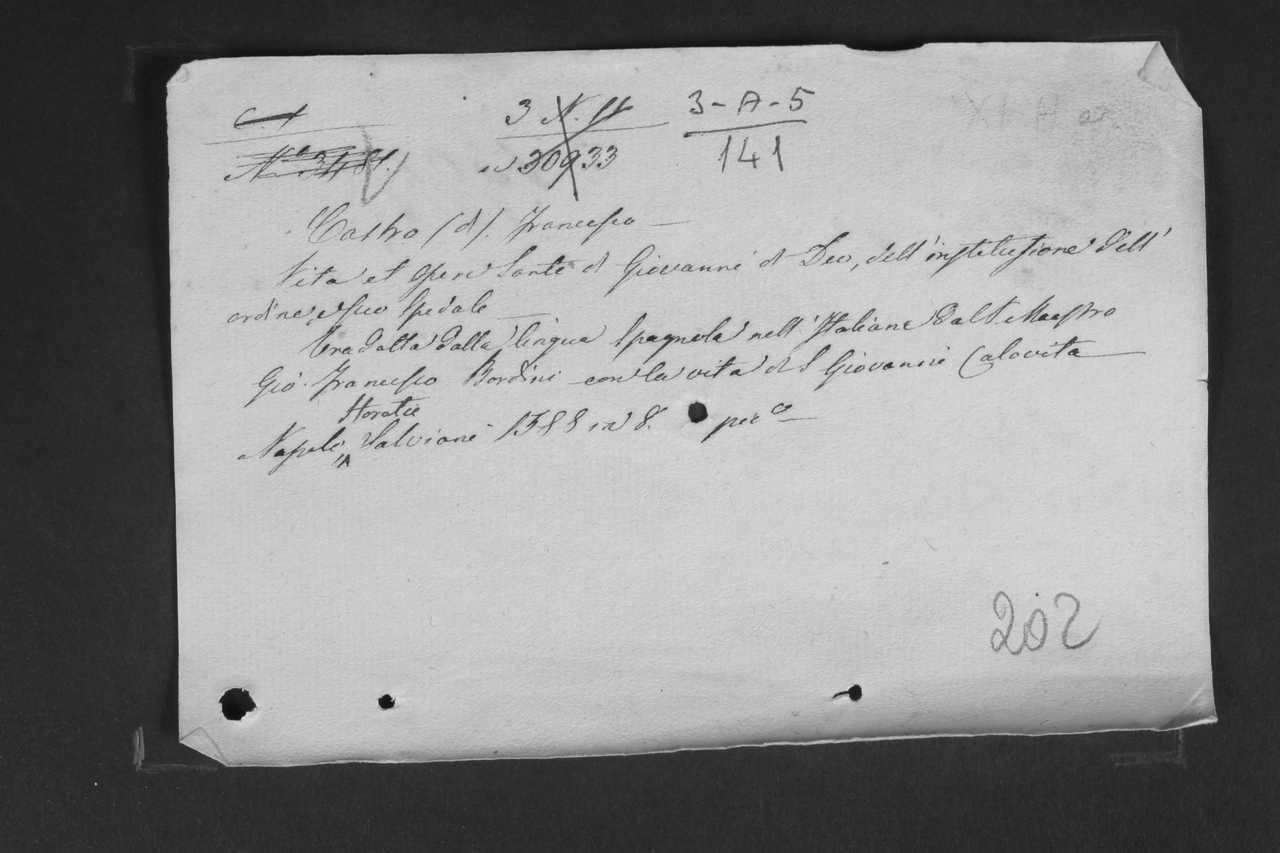 3-A-5
141
Castro (di). Francesco
Vita et opere Sante di Giovanni di Deo, dell'institutione dell'
ordine, e suo Spedale
tradotta dalla lingua Spagnola nell'Italiana dal P. Maestro
Gio. Francesco Bordini con la vita di S Giovanni Calovita
Horatio
Napoli, Salviani 1588 in 8.
202